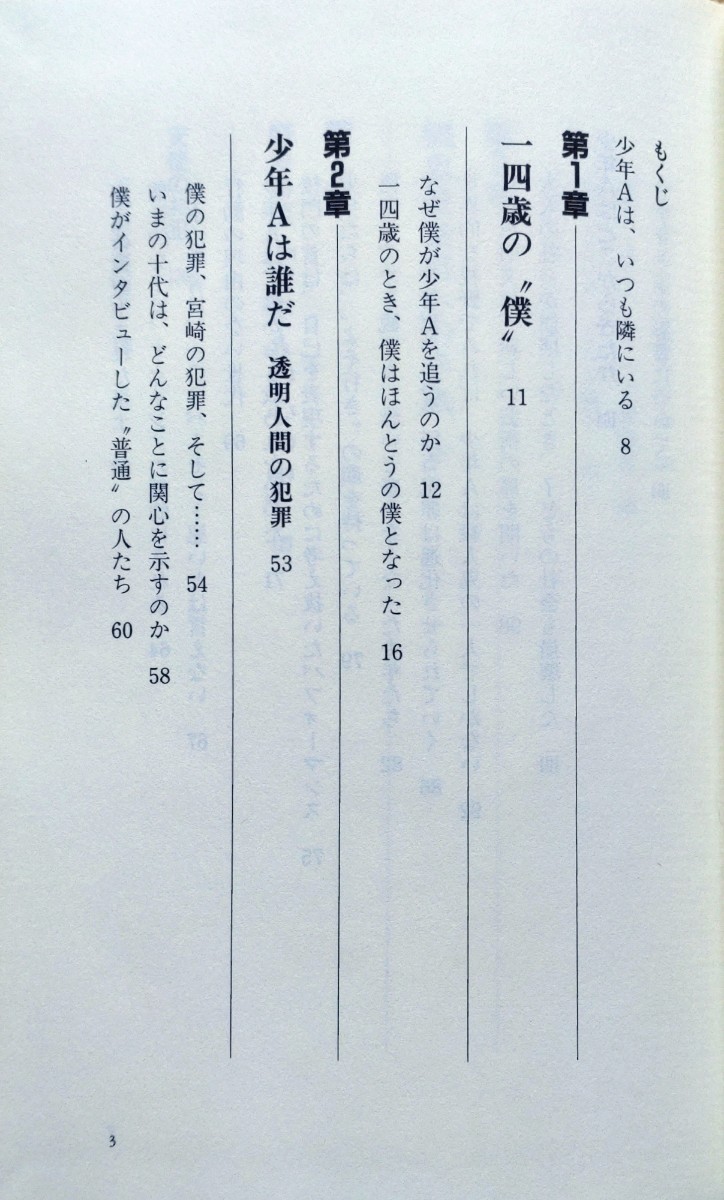 もくじ
少年Aは、いつも隣にいる 8
第1章
一四歳の〝僕〟 11
なぜ僕が少年Aを追うのか 12
一四歳のとき、僕はほんとうの僕となった 16
第2章
少年Aは誰だ 透明人間の犯罪 53
僕の犯罪、宮崎の犯罪、そして…… 54
いまの十代は、どんなことに関心を示すのか 58
僕がインタビューした〝普通〟の人たち 60
3